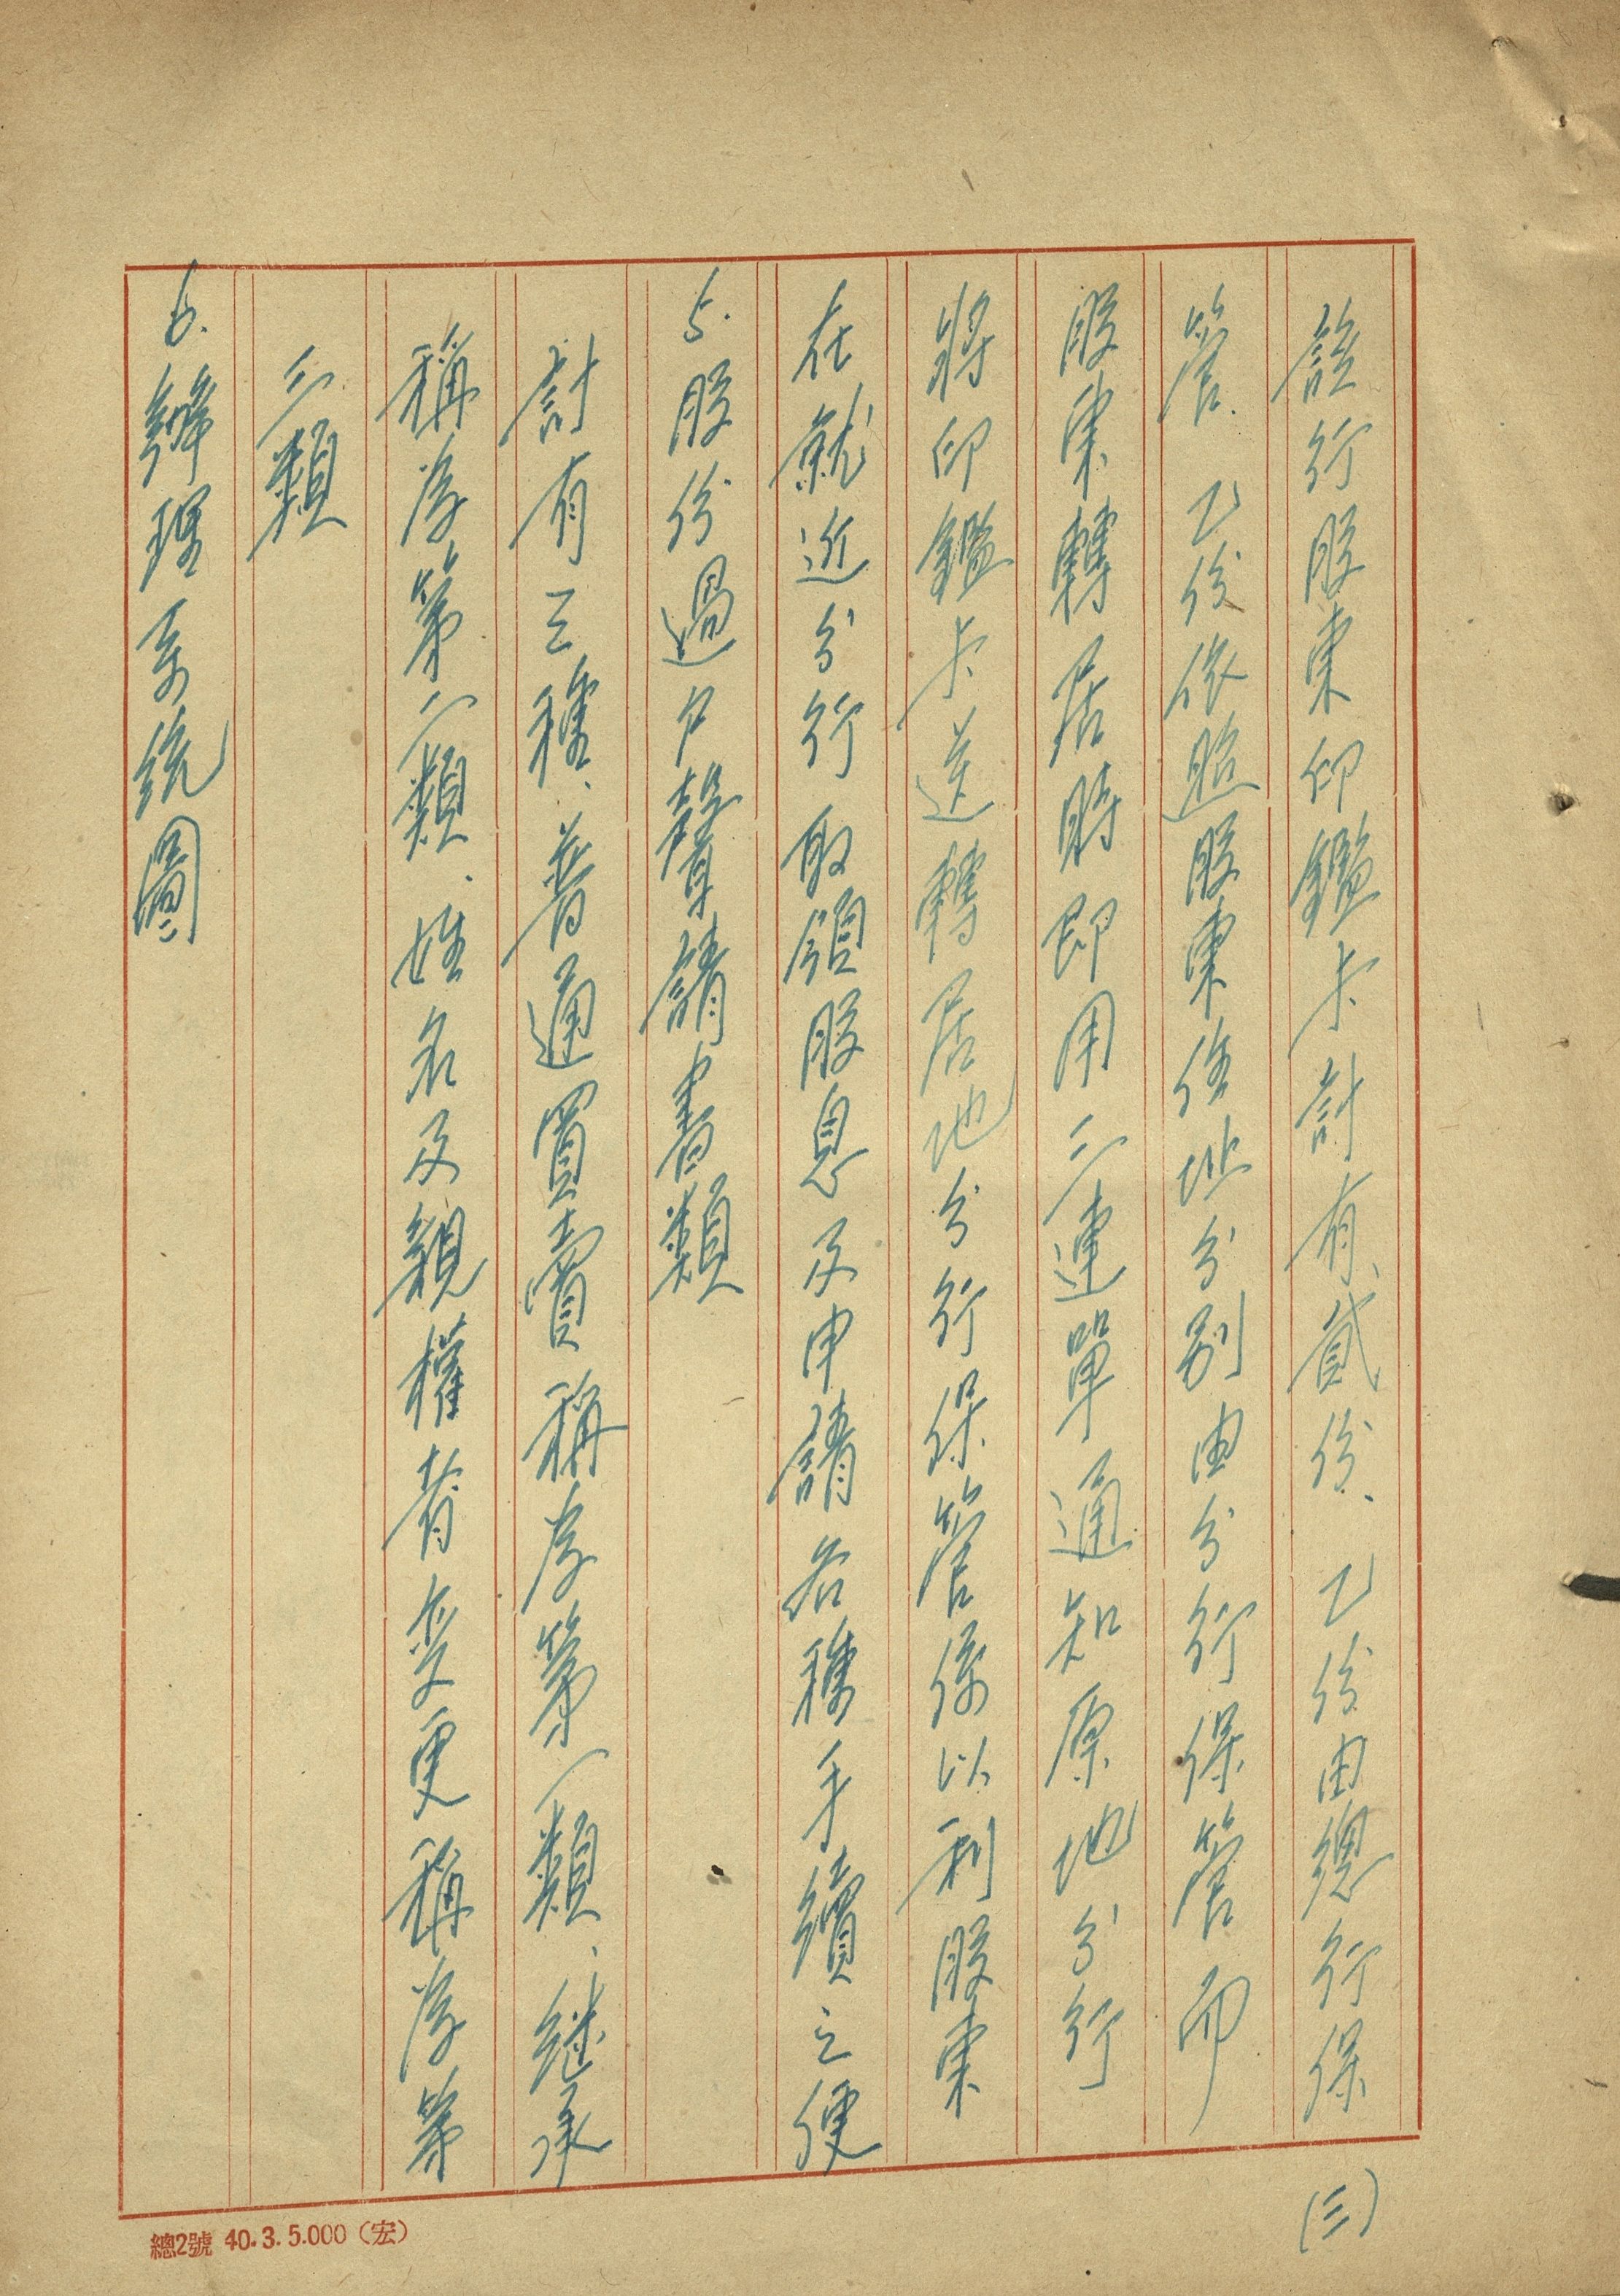 該行股東印鑑卡計有貳份、乙份由總行保
管、乙份依照股東住址分別由分行保管而
股東轉居時即用三連單通知原地分行
將印鑑卡送轉居地分行保管係以利股東
在就近分行取領股息及申請各種手續之便
5.股份過户聲請書類
計有三種、普通買賣稱為第一類、继承
稱為第二類、姓名及親權者变更稱為第
三類
6.辦理系統圖
(三)
總2號 40.3.5.000(宏)